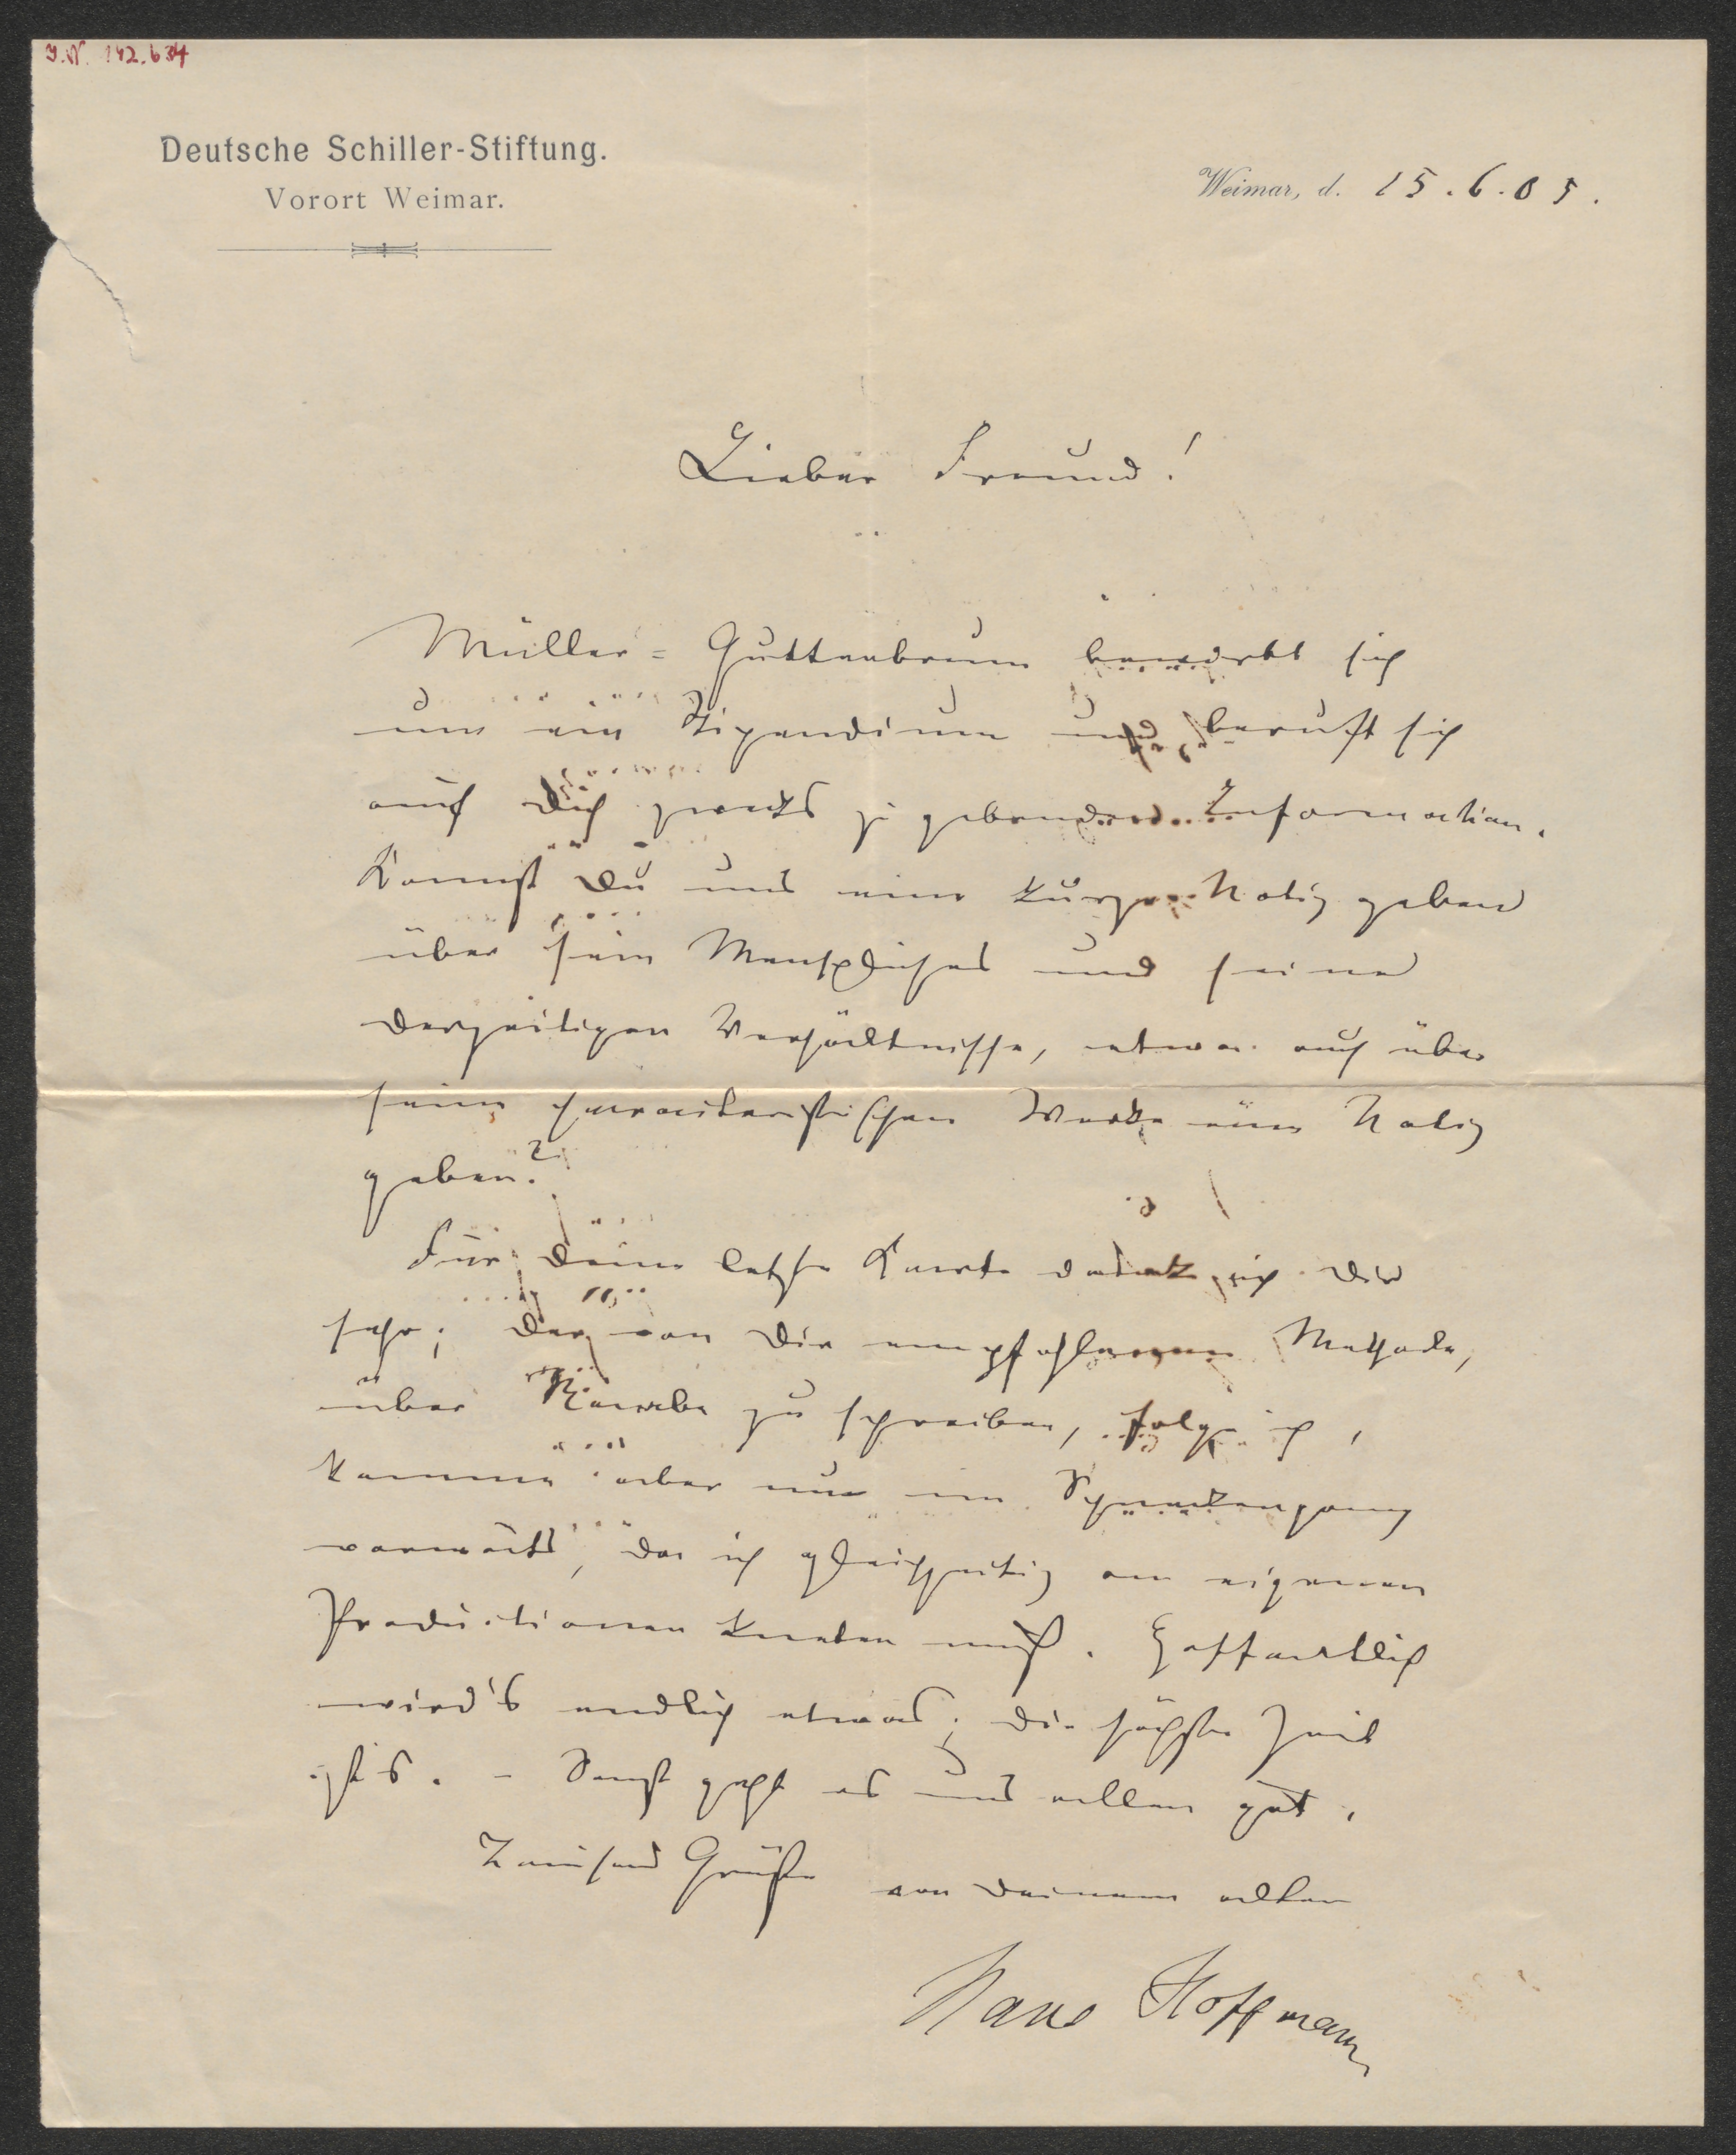 J.N. 142.634
Deutsche Schiller-Stiftung.
Vorort Weimar.
Weimar, d. 15.6.05.
Lieber Freund!
Müller-Guttenbrunn bewirbt sich
um ein Stipendium und beruft sich
auf Dich zwecks zu gebender Information.
Kannst Du uns eine kurze Notiz geben
über sein Menschliches und seine
derzeitigen Verhältnisse, etwa auch über
seine charakteristischen Werke eine Notiz
geben?
Für Deine letzte Karte danke ich Dir
sehr; der von Dir empfohlenen Methode,
über Raabe zu schreiben, folge ich,
komme aber nur im Schneckengang
vorwärts, da ich gleichzeitig an eigenen
Productionen kneten muß. Hoffentlich
wird's endlich etwas; die höchste Zeit
ist's. – Sonst geht es uns allen gut.
Tausend Grüße von Deinem alten
Hans Hoffmann